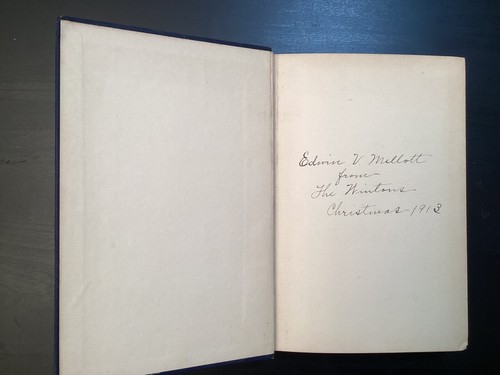 Edwin V Mellott
from
The Wintons
Christmas 1913